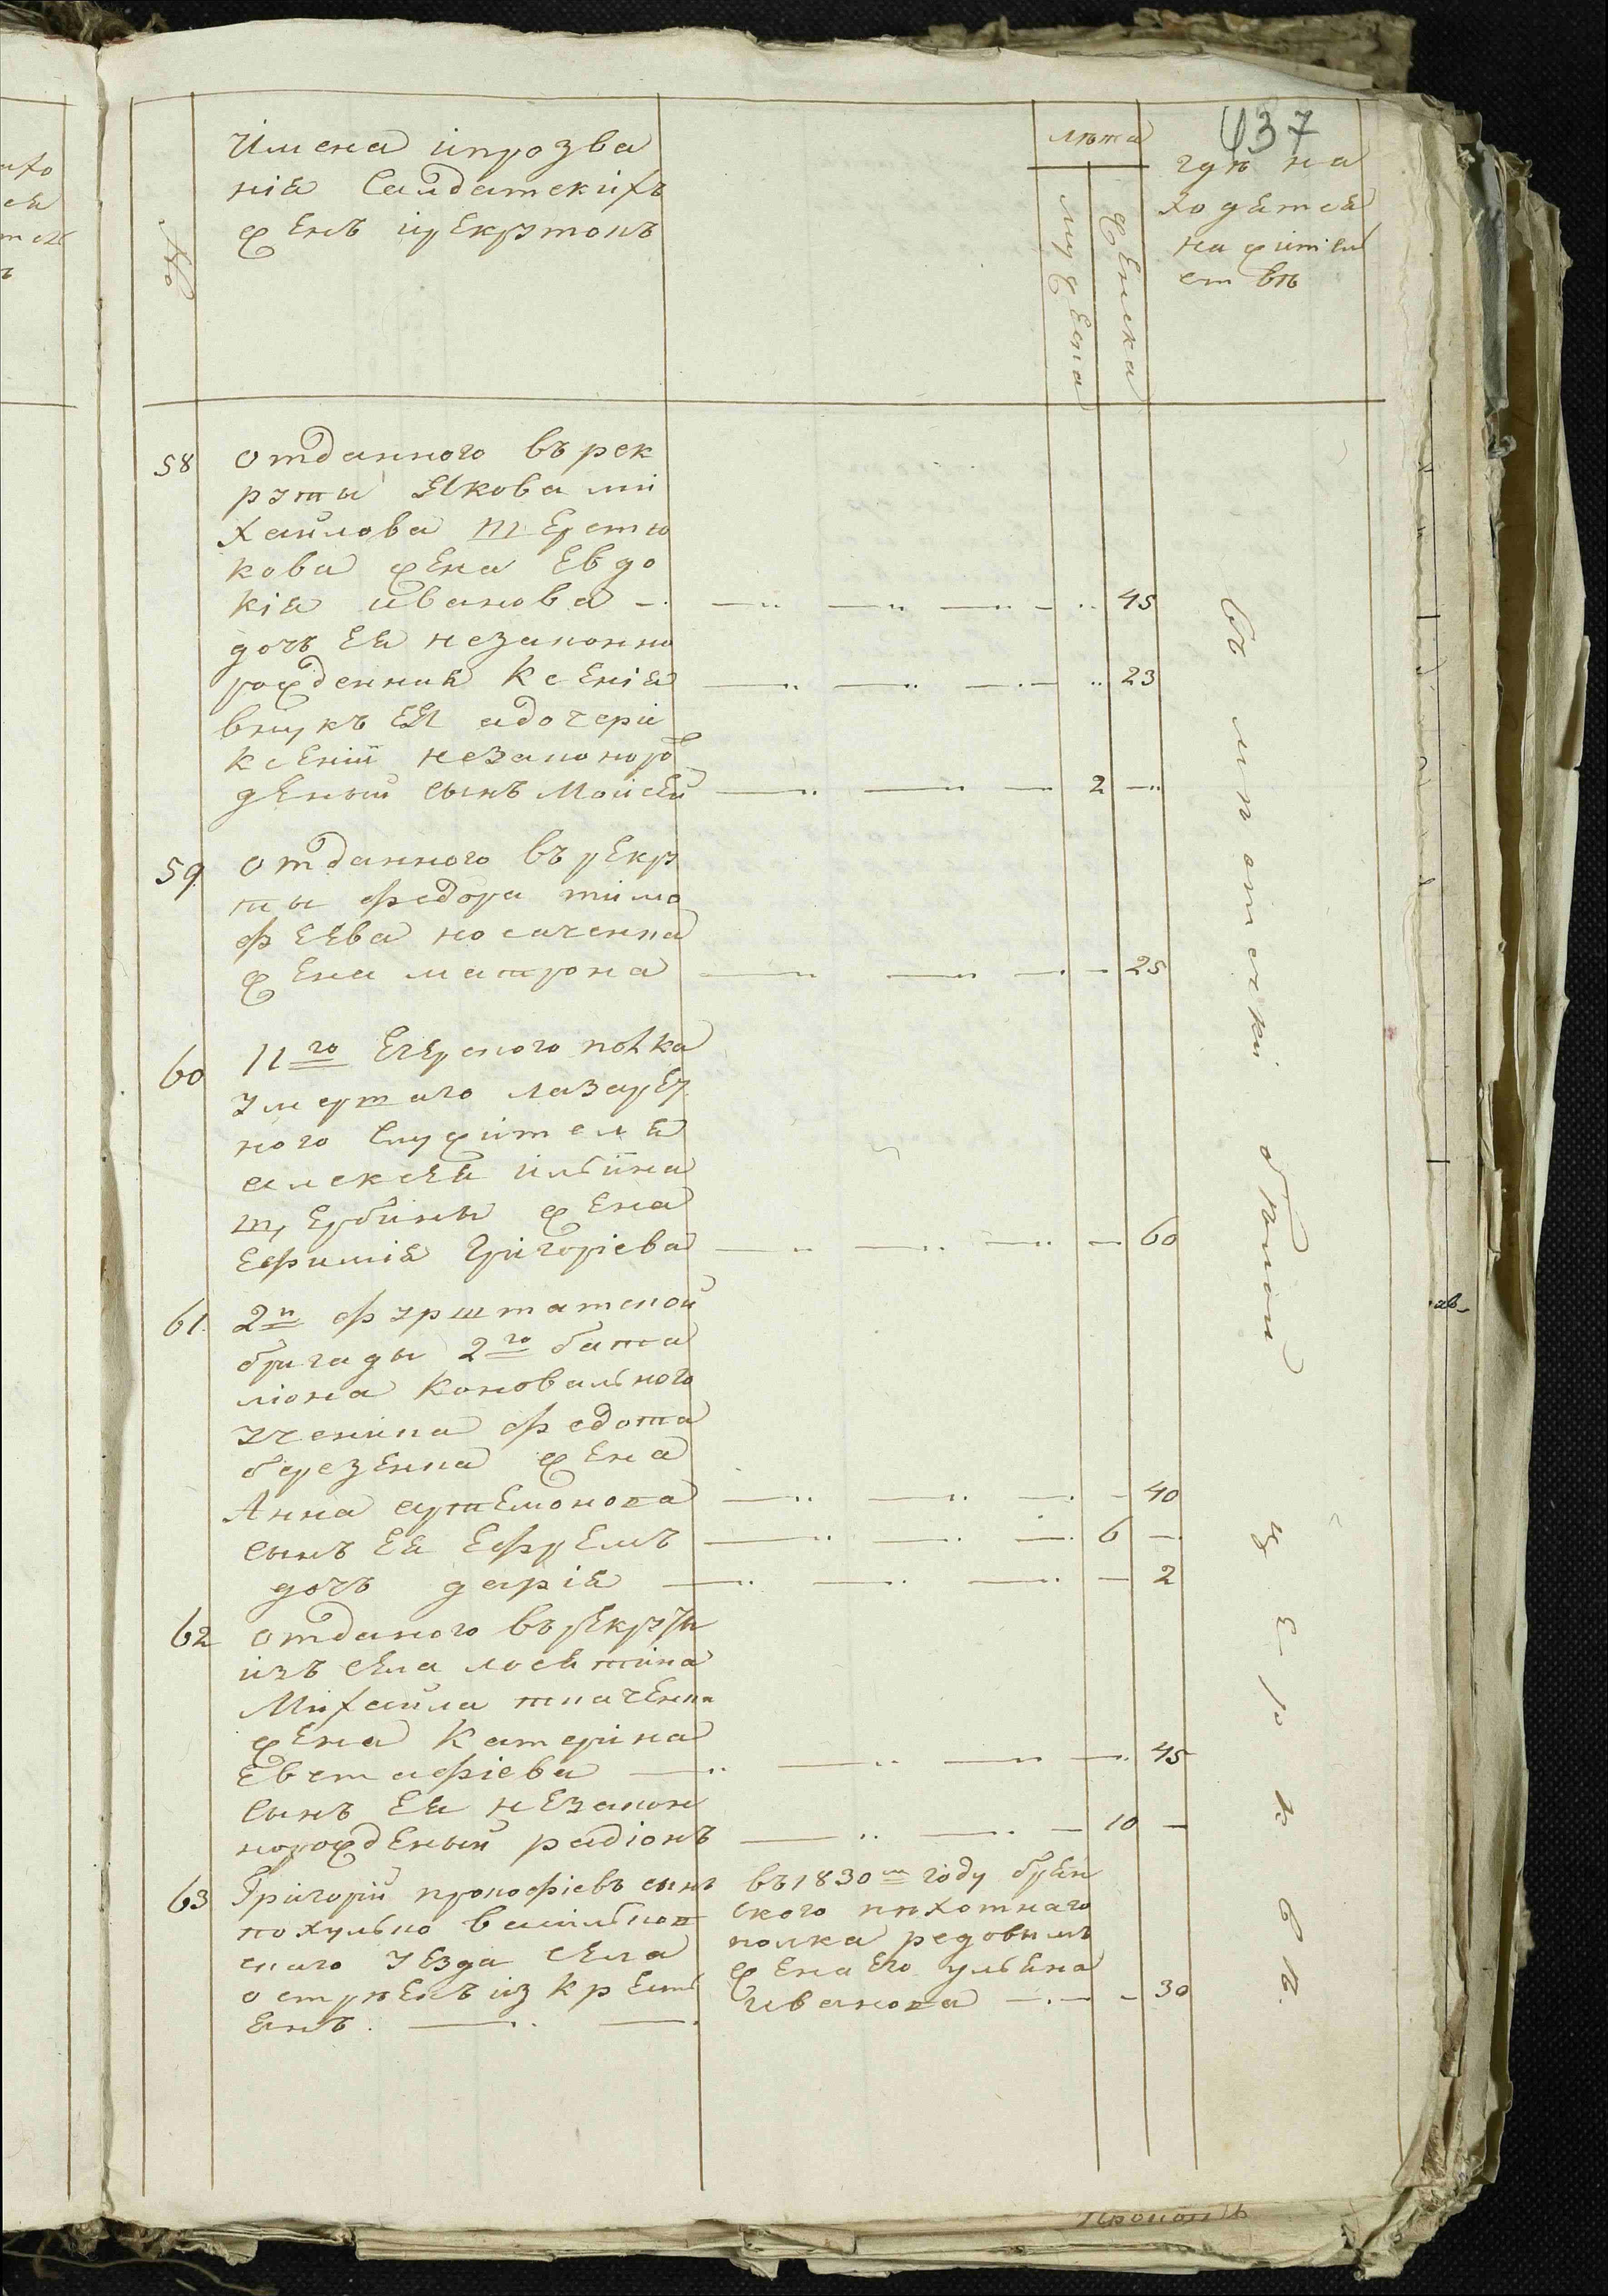 437
№
Имена ипрозва
нія Салдатскихъ
женъ ирекрутовъ
лѣта
мужеска
женска
гдѣ на
ходятся
на жител
ствѣ
58 отданного въ рек
руты Якова ми
хайлова терстю
кова жена Евдо
кія иванова — 45
дочъ ея незаконно
рожденная ксенія — 23
внукъ ея адочери
ксеніи незаконорож
деный сынъ Моисей — 2 —
59 отданного въ рекру
ты федора тимо
феева носаченка
жена матрона — 25
60 11го Егерского полка
умершаго лазарет
ного служителя
алексея ильина
щербины жена
ефимія Григоріева — 60
61. 2й фурштатской
бригады 2го бата
ліона коновального
ученика федота
березенка жена
Анна артемонова — 40
сынъ ея Ефремъ — 6 —
дочъ дарія — 2
62 отданого въ рекруты
изъ села
Михайла ткаченка
жена Катерина
Евстафіева — 45
сынъ ея незакон
норожденый радіонъ — 10 —
63 Григорій прокофіевъ сынъ
похулько васильков
скаго уезда села
из крестъ
янъ. —
въ 1830м году брян
ского пехотнаго
полка редовымъ
жена его ульяна
иванова — 30
при
Церквѣ.